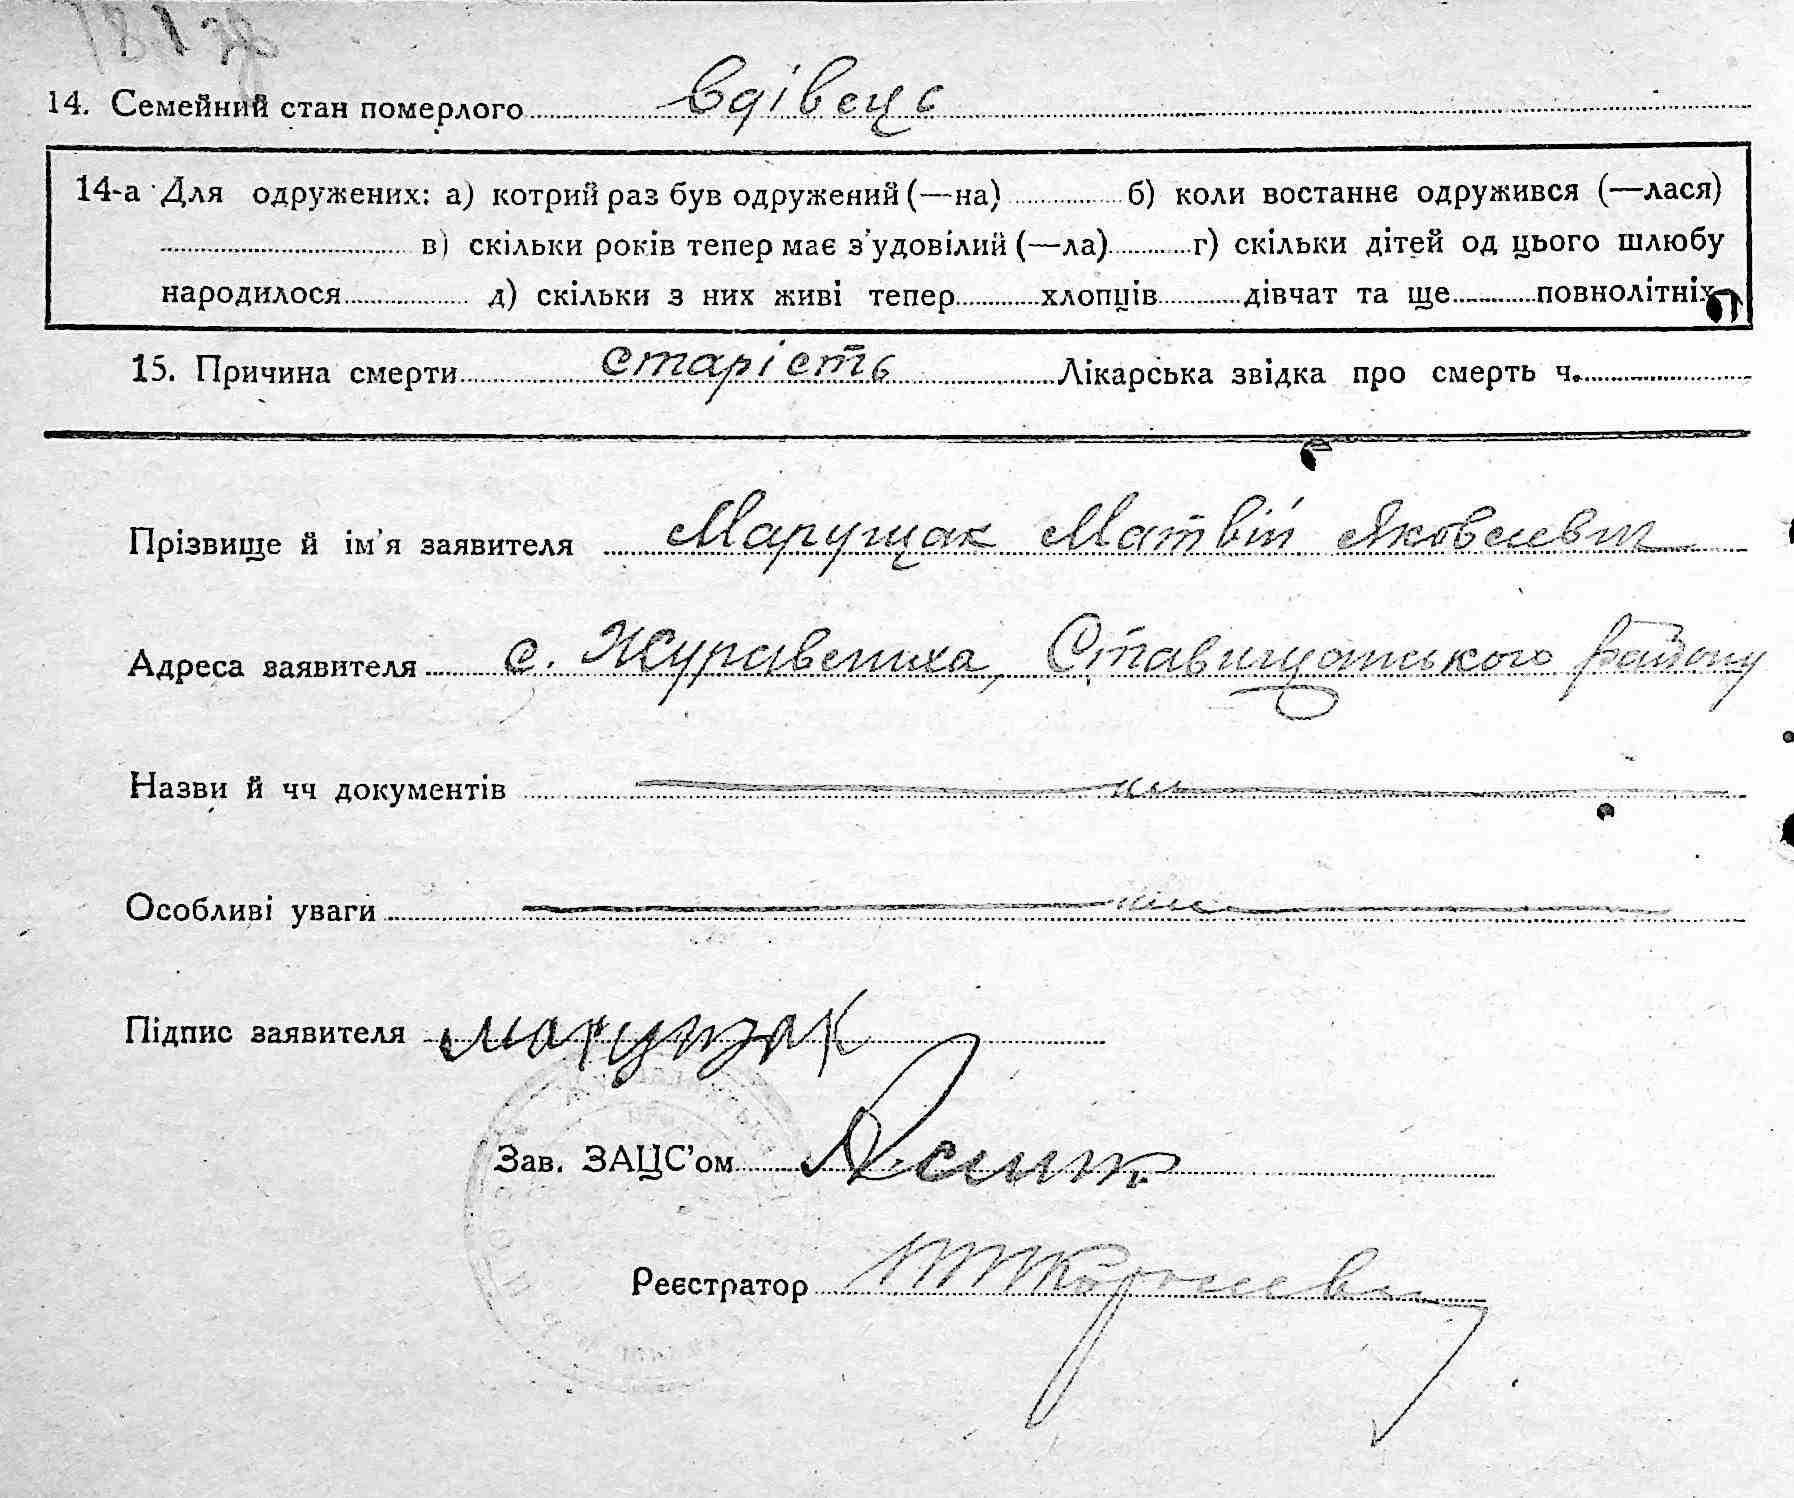 14. Семейний стан померлого вдівець
14-а Для одружених: а) котрий раз був одружений (—на) б) коли востаннє одружився (—лася)
в) скільки років тепер має з'удовілий (—ла) г) скільки дітей од цього шлюбу
народилося д) скільки з них живі тепер хлопців дівчат та ще повнолітніх
15. Причина смерти старість Лікарська звідка про смерть ч.
Прізвище й ім'я заявителя Марущак Матвій Яковлевич
Адреса заявителя с. Журавлиха, Ставищанського району
Назви й чч документів
Особливі уваги
Підпис заявителя Марущак
Зав. ЗАЦС'ом
Реєстратор